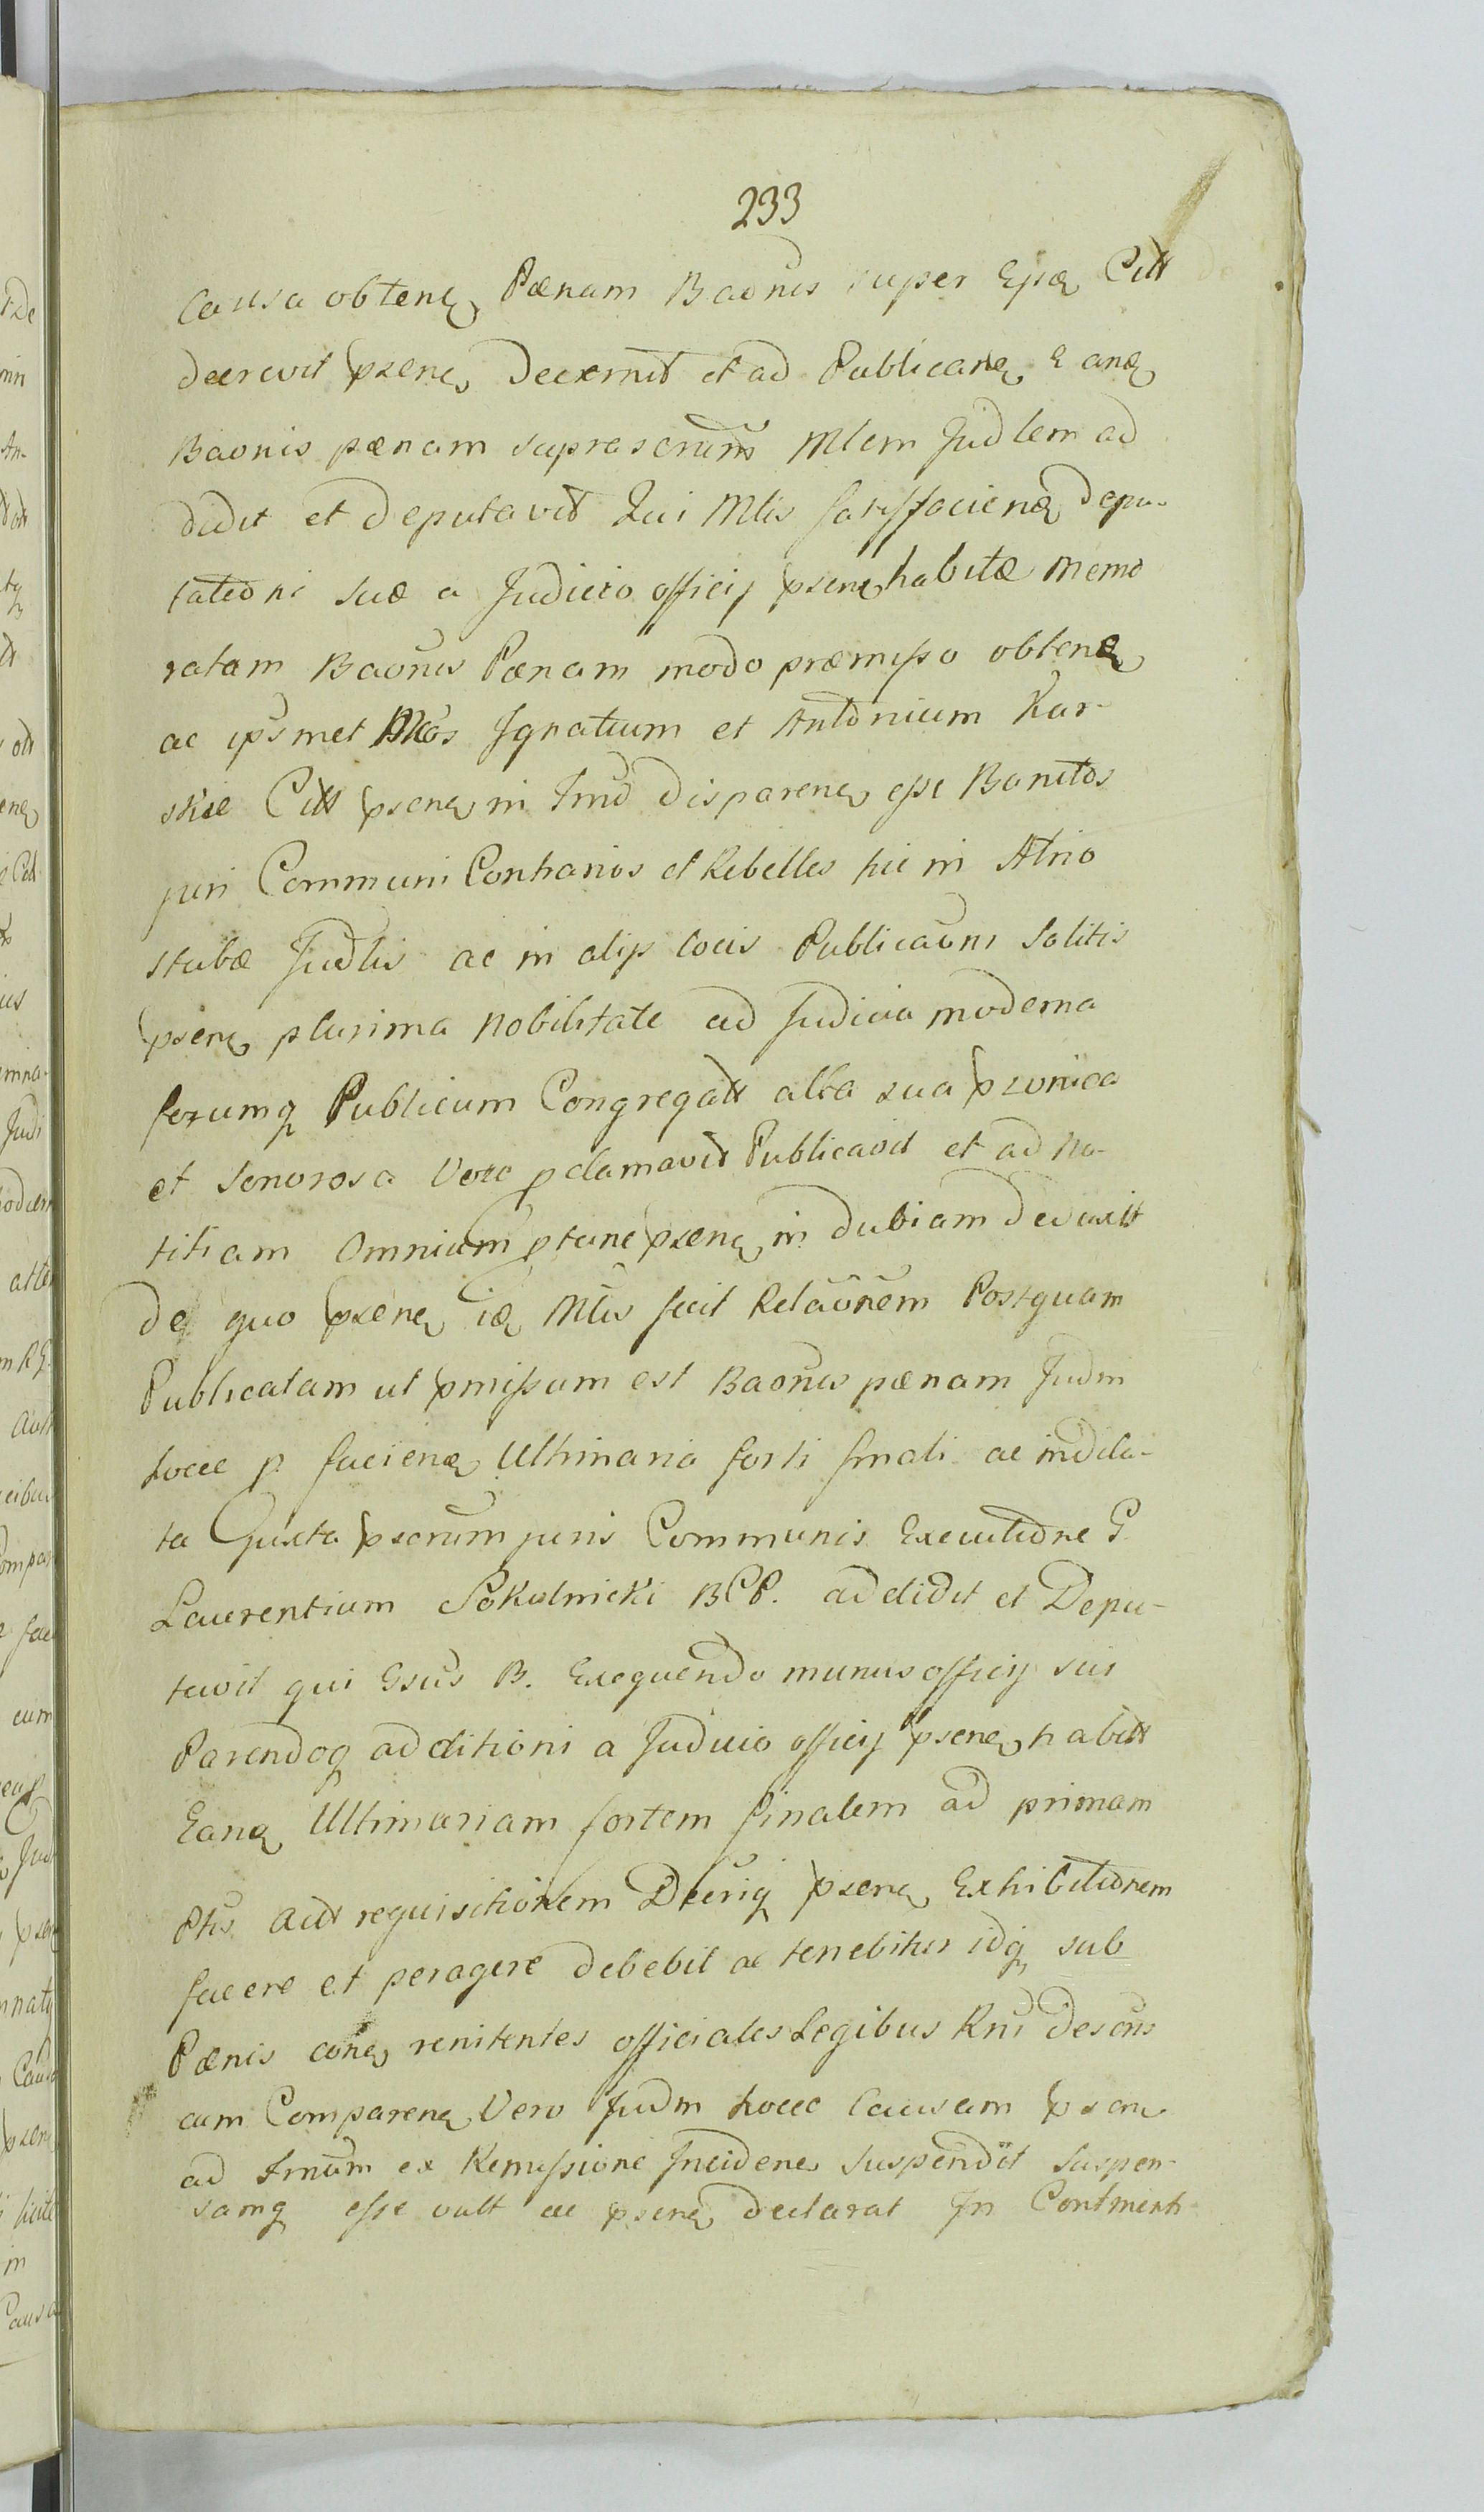 233
Causa obtenę Pænam Baõnis super Eosdę Citt
decrevit psenę Decernit et ad Publicanę Eandę
Baonis pænam suprascrum Mlem Judlem ad
didit et deputavit Qui Mlis satisfacienę depu-
tationi suæ a Judicio officij psenę habitæ memo
ratam Baõnis Pænam modo præmisso obtenę
ac ipsmet Mcos Ignatium et Antonium Kar-
skie Citt psenę in Tmo disparenę esse Banitos
juri Communi Contrarios et Rebelles hic in Atrio
stubæ Judlis ac in alijs locis Publicaõni Solitis
psenę plurima nobilitate ad Judicia moderna
forumq Publicum Congregatt alta sua pconica
et Sonorosa Voce pclamavit Publicavit et ad no-
titiam Omnium ptunc psenę in dubiam deduxit
De quo psenę idę Mlis fecit Relaõnem Postquam
Publicatam ut pmissum est Baõnis pænam Judm
hocce p facienę Ultimaria forti finali ac indila-
ta Juxta pscrum juris Communis Executione G.
Laurentium Sokolnicki BCP. addidit et Depu-
tavit qui Gsus B. Exequendo munus officij sui
Parendoq additioni a Judicio officij psenę habitt
Eandę Ultimariam fortem finalem ad primam
Ptis Actt requisitionem Dtiq psenę Exhibitionem
facere et peragere debebit ac tenebitur idq sub
Pænis conę renitentes officiales Legibus Rni descris
cum Comparenę Vero Judm hocce Causam psen
ad Tmum ex Remissione Incidenę Suspendit Suspen-
samq esse vult ac psenę declarat In Continenti